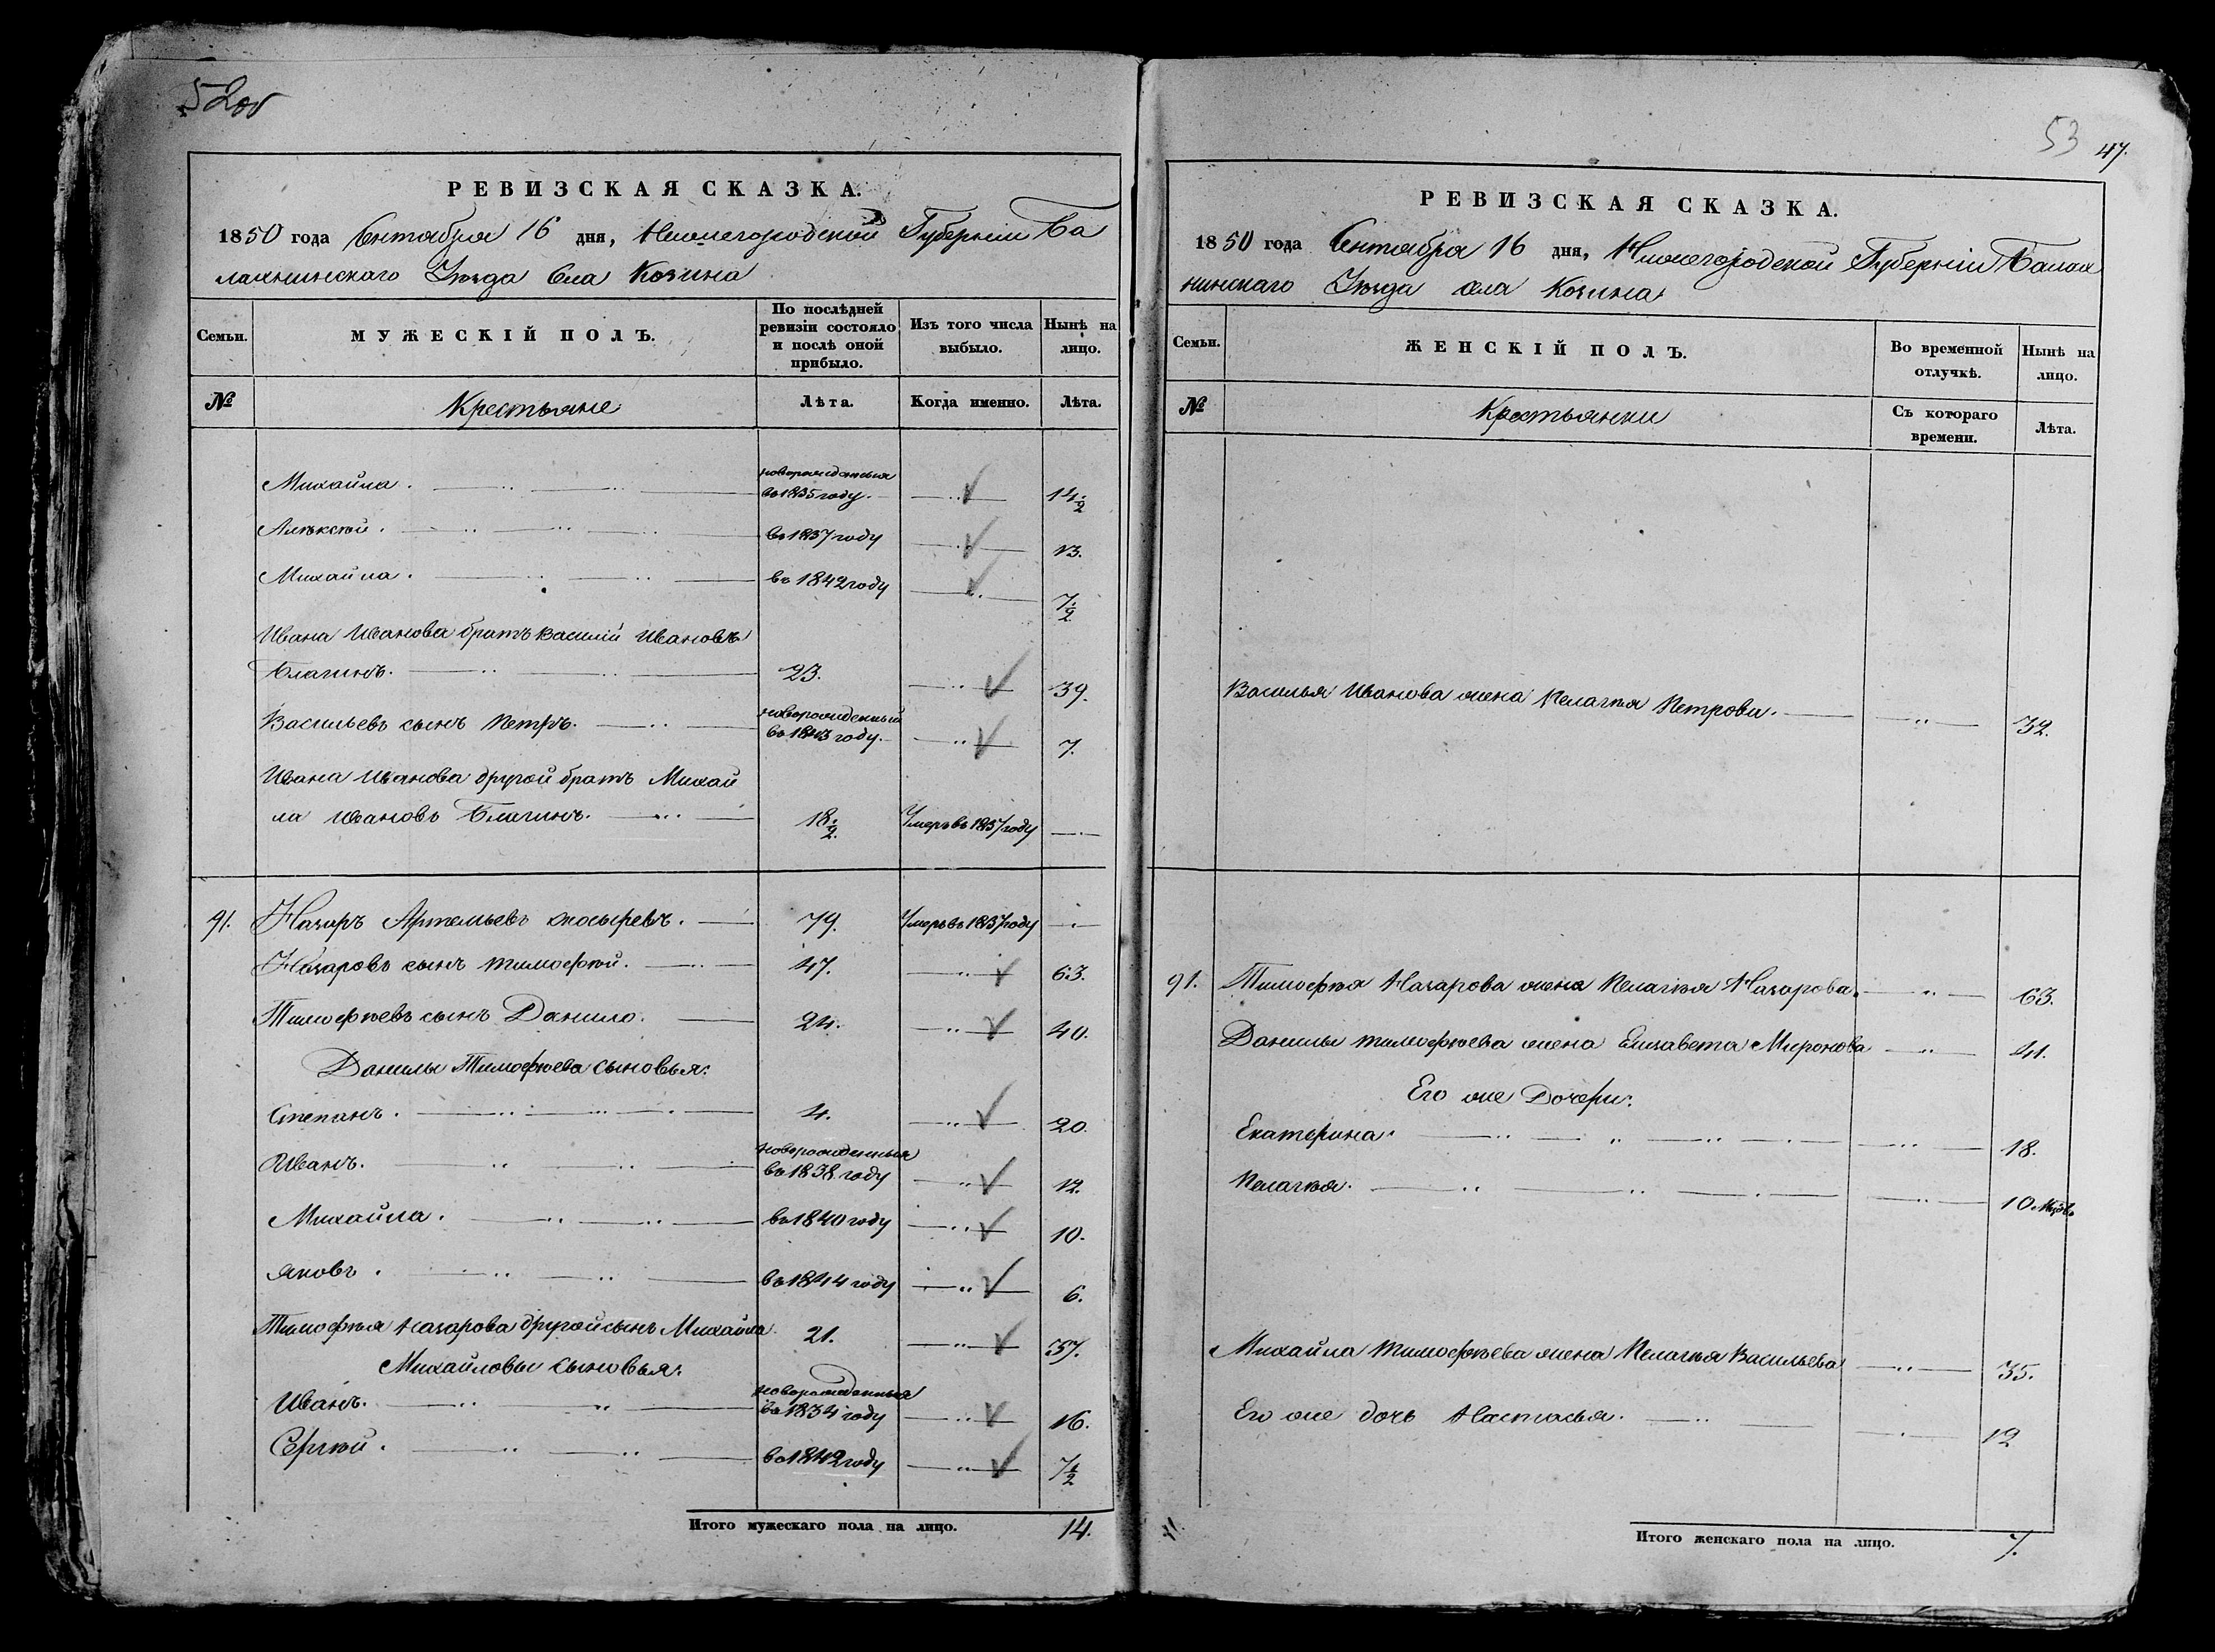 52об
РЕВИЗСКАЯ СКАЗКА.
1850 года Сентября 16 дня, Нижегородской Губерніи Ба
лахнинскаго Уѣзда Села Козина
Семьи. МУЖЕСКІЙ ПОЛЪ. По послѣдней ревизіи состояло и послѣ оной прибыло. Изъ того числа выбыло. Нынѣ на лицо.
№ Крестьяне Лѣта. Когда именно. Лѣта.
Михайла. новорожденныя въ 1835 году. 14 1/2
Алѣксѣй. въ 1837 году 13.
Михайла. въ 1842 году 7 1/2
Ивана Иванова братъ Василій Ивановъ
Благинъ. 23. 39.
Васильевъ сынъ Петръ. новорожденный въ 1843 году. 7.
Ивана Иванова другой братъ Михай
ла Ивановъ Благинъ. 18 1/2. Умеръ въ 1837 году
91. Назаръ Артемьевъ Скосыревъ. 79. Умеръ въ 1837 году
Назаровъ сынъ Тимофѣй. 47. 63.
Тимофѣевъ сынъ Данило. 24. 40.
Данилы Тимофѣева сыновья:
Степанъ. 4. 20.
Иванъ. новорожденныя въ 1838 году 12.
Михайла. въ 1840 году 10.
Яковъ. въ 1844 году 6.
Тимофѣя Назарова другой сынъ Михайла. 21. 37.
Михайловы сыновья:
Иванъ. новорожденныя въ 1834 году 16.
Сергѣй. въ 1842 году 7 1/2
Итого мужескаго пола на лицо. 14.
53 47.
РЕВИЗСКАЯ СКАЗКА.
1850 года Сентября 16 дня, Нижегородской Губерніи Балах
нинскаго Уѣзда села Козина
Семьи. ЖЕНСКІЙ ПОЛЪ. Во временной отлучкѣ. Нынѣ на лицо.
№ Крестьянки Съ котораго времени. Лѣта.
Василья Иванова жена Пелагѣя Петрова. 32.
91. Тимофѣя Назарова жена Пелагѣя Назарова. 63.
Данилы Тимофѣева жена Елизавета Миронова 41.
Его же Дочери:
Екатерина. 18.
Пелагѣя. 10 мѣсяц.
Михайла Тимофѣева жена Пелагѣя Васильева 35.
Его же дочь Настасья. 12
Итого женскаго пола на лицо. 7.